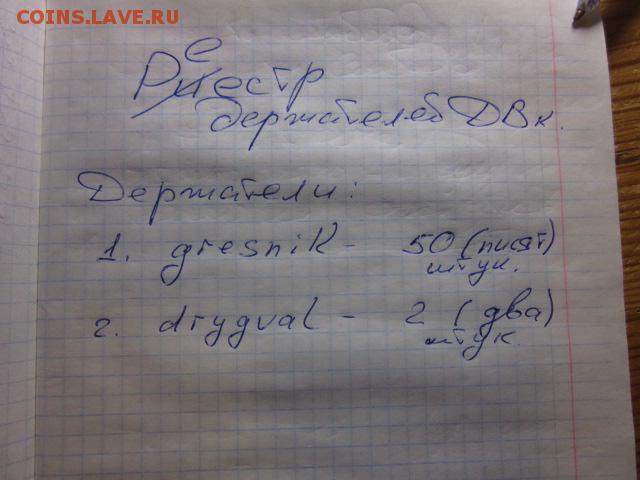 COINS.LAVE.RU
Реестр
держателей ДВк.
Держатели:
1. gresnik - 50 (писят)
штук.
2. drygval - 2 (два)
штук.